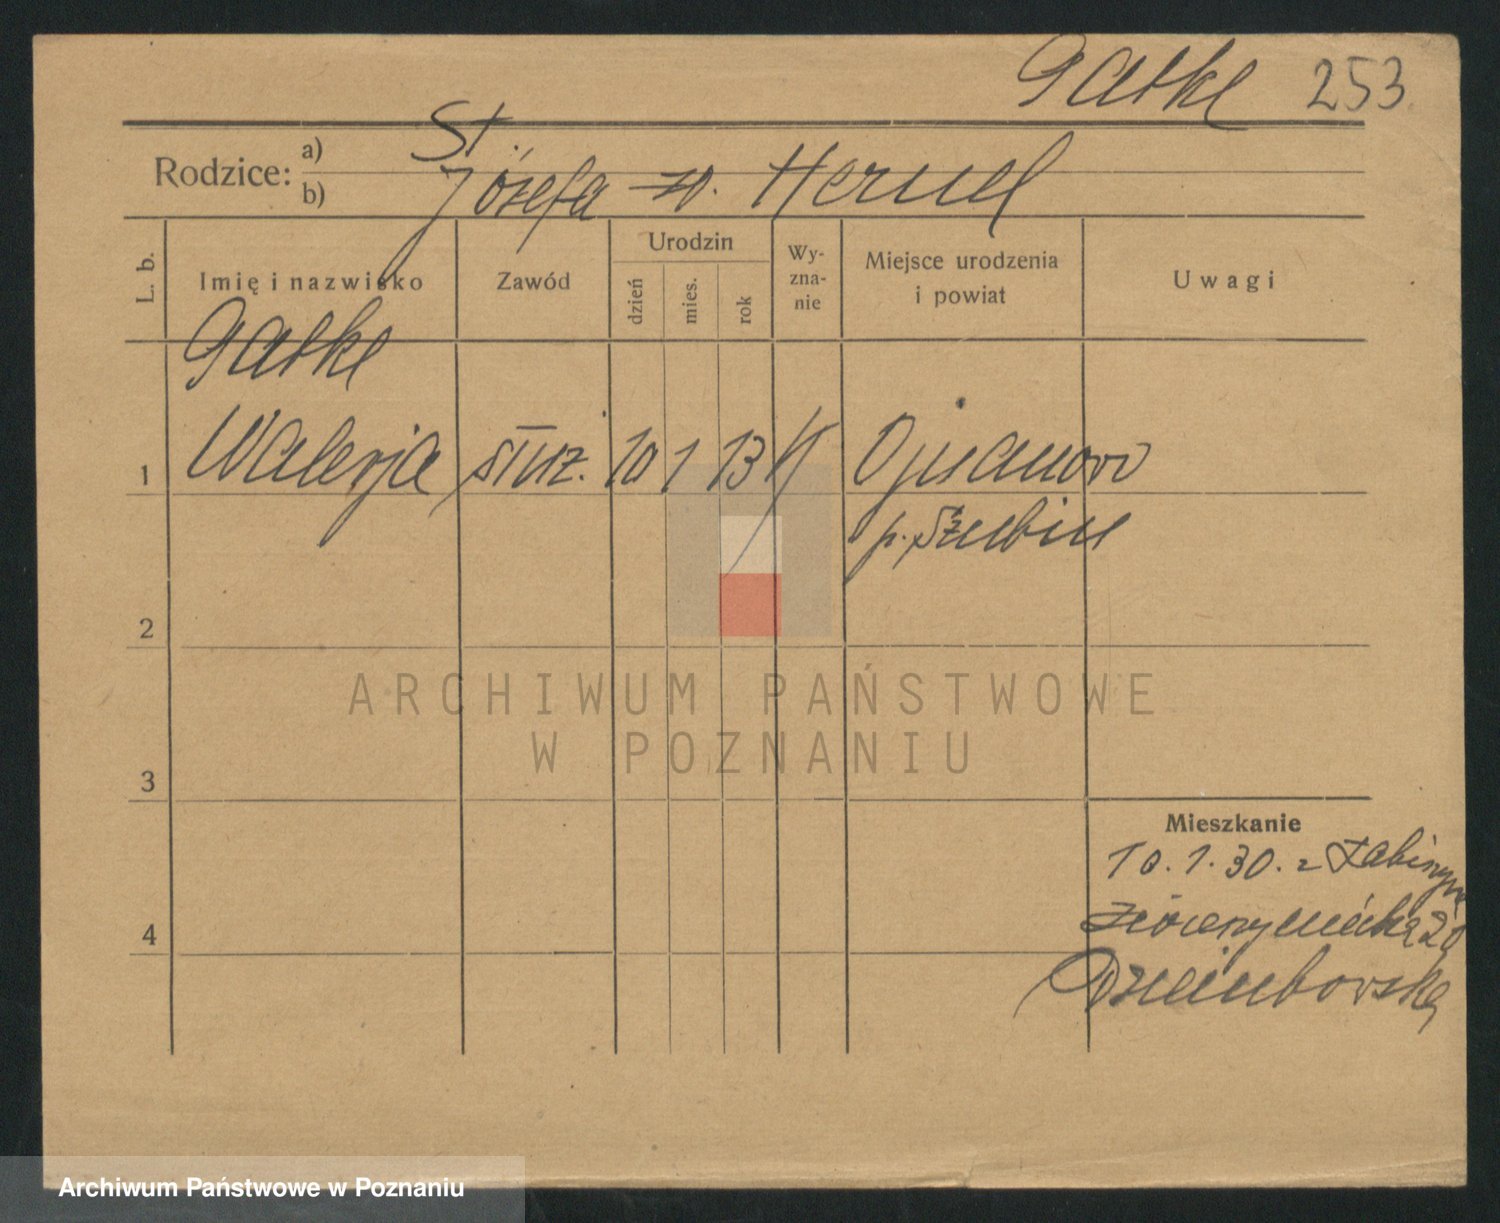 Gatke 253
Rodzice: a) St.
b) Józefa z d. Hernel
L. b. Imię i nazwisko Zawód Urodzin dzień mies. rok Wyznanie Miejsce urodzenia i powiat Uwagi
Gatke
1 Walerja służ. 10 1 13 K
p. Szubin
2
3
4
Mieszkanie
10.1.30. z Łabiszyna
20
ARCHIWUM PAŃSTWOWE
W POZNANIU
Archiwum Państwowe w Poznaniu